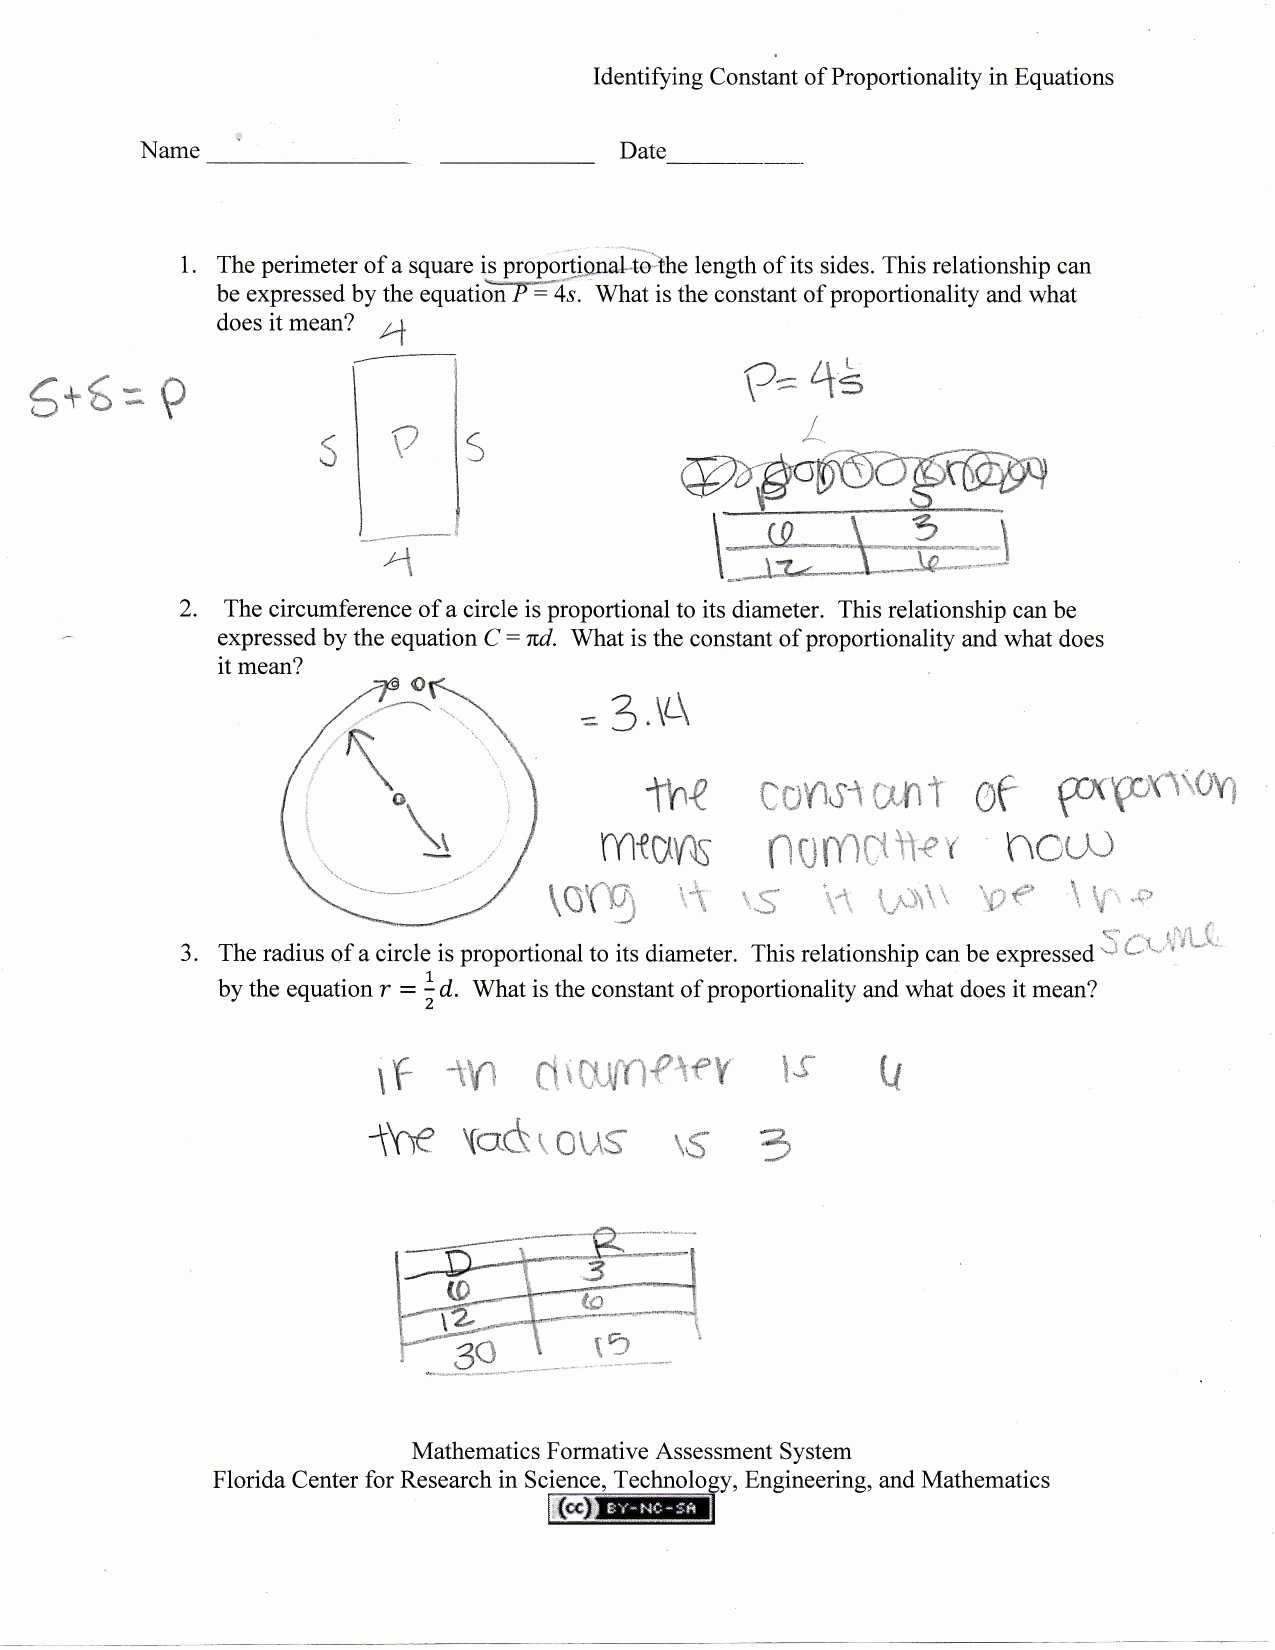 Identifying Constant of Proportionality in Equations
Name Date
1. The perimeter of a square is proportional to the length of its sides. This relationship can
be expressed by the equation P = 4s. What is the constant of proportionality and what
does it mean?
4
S+S=P
S P S
4
P=4s
P S
6 3
12 6
2. The circumference of a circle is proportional to its diameter. This relationship can be
expressed by the equation C = πd. What is the constant of proportionality and what does
it mean?
= 3.14
the constant of porportion
means nomatter how
long it is it will be the
same
3. The radius of a circle is proportional to its diameter. This relationship can be expressed
by the equation r = 1/2 d. What is the constant of proportionality and what does it mean?
if th diameter is 6
the radious is 3
D R
6 3
12 6
30 15
Mathematics Formative Assessment System
Florida Center for Research in Science, Technology, Engineering, and Mathematics
(cc) BY-NC-SA